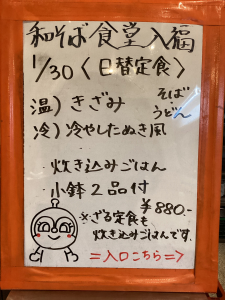 和そば食堂入福
1/30〈日替定食〉
温)きざみ そば
冷)冷やしたぬき風 うどん
・炊き込みごはん
・小鉢2品付
¥880-
※ざる定食も
炊き込みごはんです。
=入口こちら=>